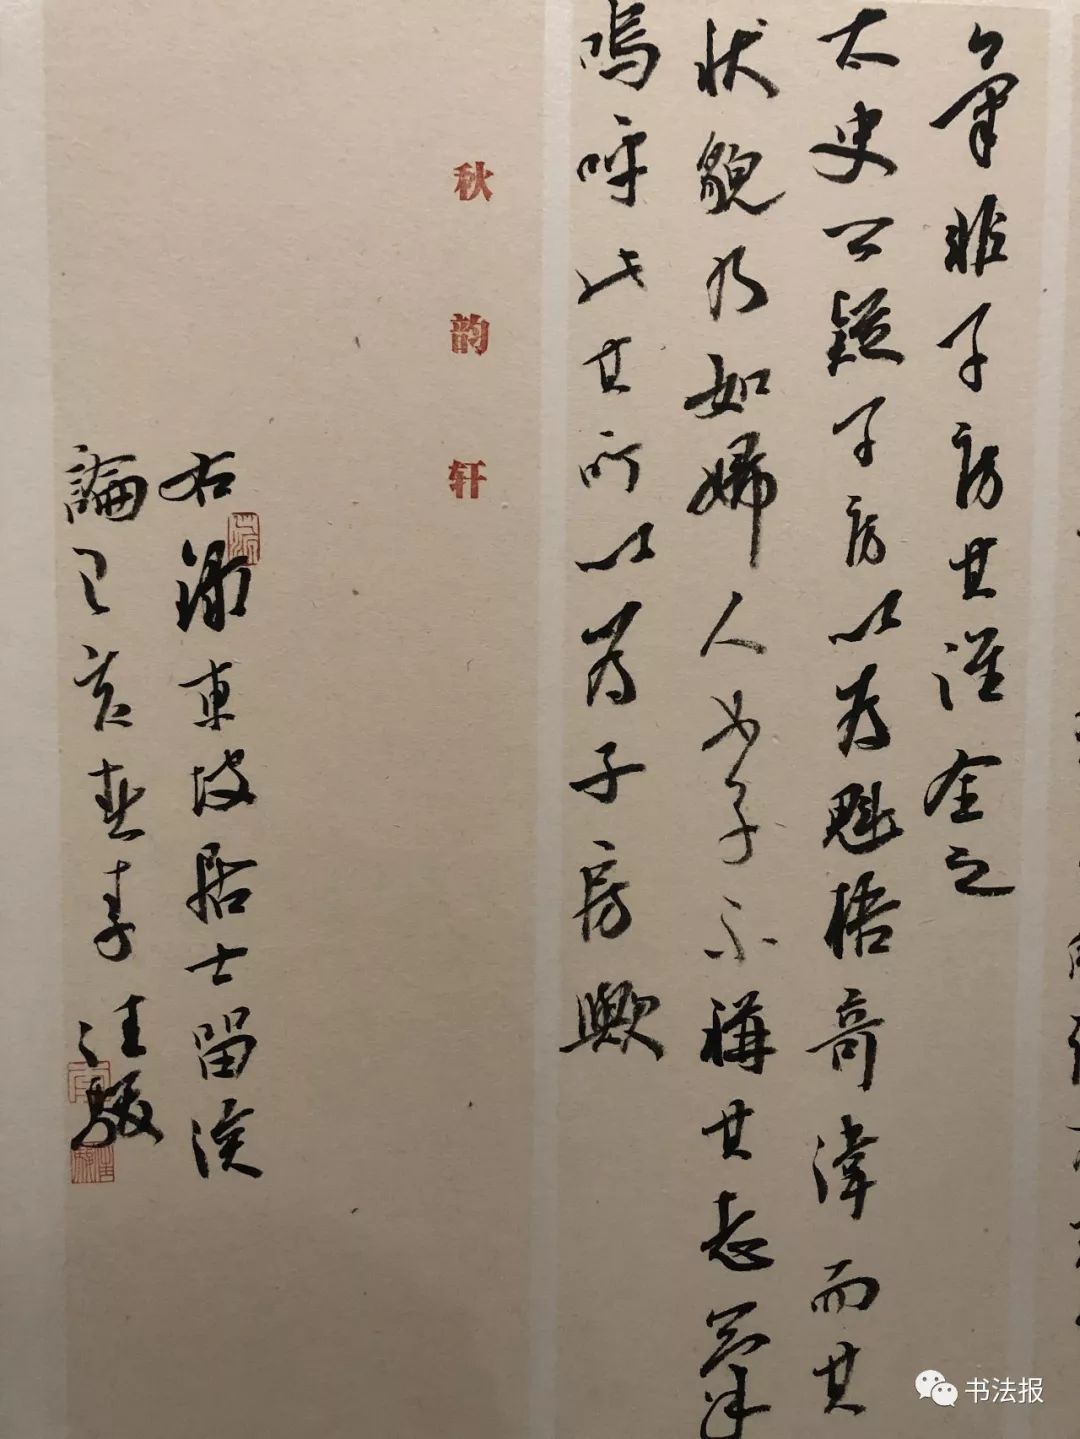 氣非子房其誰全之
太史公疑子房以為魁梧奇偉而其
狀貌乃如婦人女子不稱其志氣
嗚呼此其所以為子房歟
秋韵轩
右錄東坡居士留侯
論己亥春李汪駿
书法报